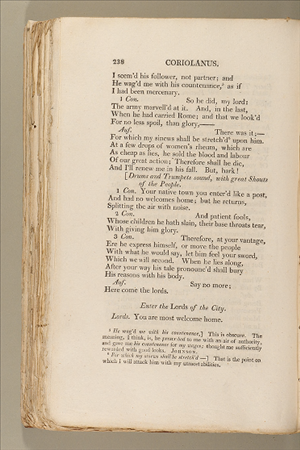 238 CORIOLANUS.
I seem'd his follower, not partner; and
He wag'd me with his countenance,² as if
I had been mercenary.
1 Con. So he did, my lord:
The army marvell'd at it. And, in the last,
When he had carried Rome; and that we look'd
For no less spoil, than glory,——
Auf. There was it;—
For which my sinews shall be stretch'd upon him.
At a few drops of women's rheum, which are
As cheap as lies, he sold the blood and labour
Of our great action; Therefore shall he die,
And I'll renew me in his fall. But, hark!
[Drums and Trumpets sound, with great Shouts
of the People.
1 Con. Your native town you enter'd like a post,
And had no welcomes home; but he returns,
Splitting the air with noise.
2 Con. And patient fools,
Whose children he hath slain, their base throats tear,
With giving him glory.
3 Con. Therefore, at your vantage,
Ere he express himself, or move the people
With what he would say, let him feel your sword,
Which we will second. When he lies along,
After your way his tale pronounc'd shall bury
His reasons with his body.
Auf. Say no more;
Here come the lords.
Enter the Lords of the City.
Lords. You are most welcome home.
He wag'd me with his countenance,] This is obscure. The
meaning, I think, is, he prescribed to me with an air of authority,
and gave me his countenance for my wages; thought me sufficiently
rewarded with good looks. JOHNSON.
For which my sinews shall be stretch'd —] That is the point on
which I will attack him with my utmost abilities.